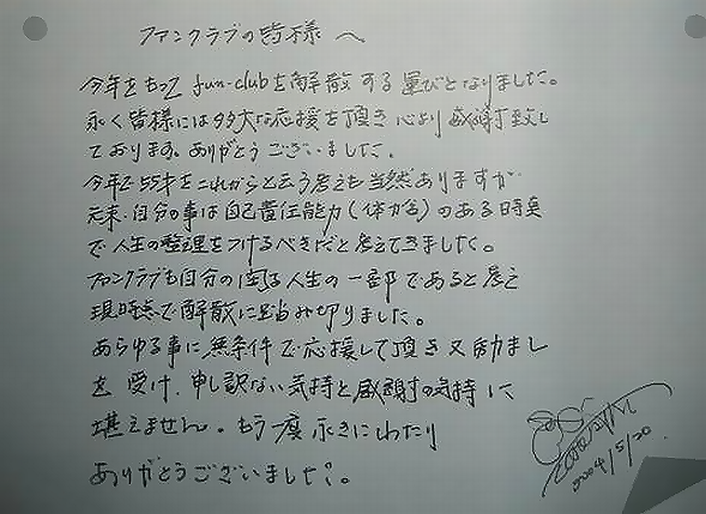 ファンクラブの皆様へ
今年をもって fun-clubを解散する運びとなりました。
永く皆様には多大な応援を頂き心より感謝致し
ております。ありがとうございました。
今年で55才をこれからと云う考えも当然ありますが
元来、自分の事は自己責任能力(体力含)のある時点
で人生の整理をつけるべきだと考えてきました。
ファンクラブも自分の図る人生の一部であると考え
現時点で解散に踏み切りました。
あらゆる事に無条件で応援して頂き又励まし
を受け、申し訳ない気持と感謝の気持に
堪えません。もう一度永きにわたり
ありがとうございました。
2004/5/20